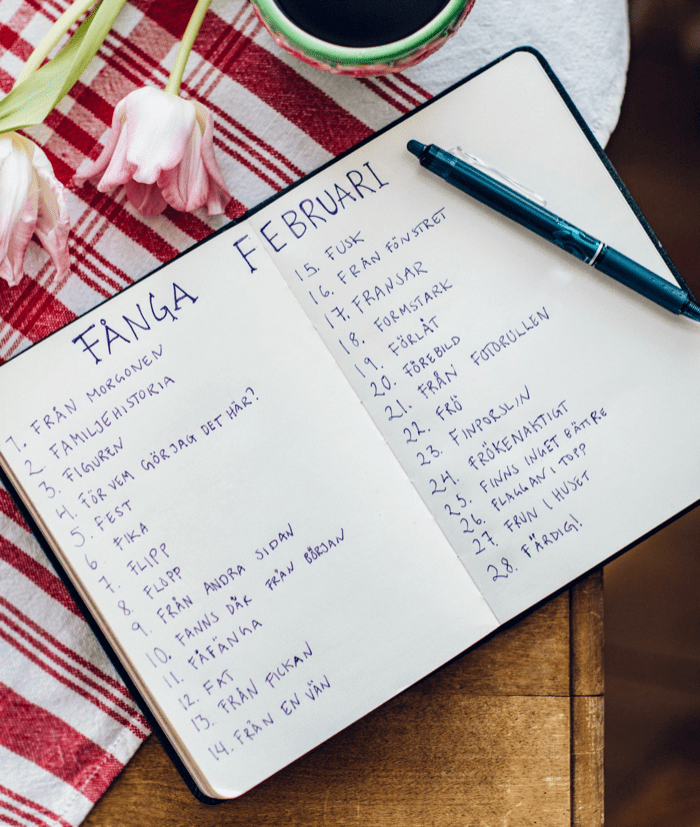 FÅNGA FEBRUARI
1. FRÅN MORGONEN
2. FAMILJEHISTORIA
3. FIGUREN
4. FÖR VEM GÖR JAG DET HÄR?
5. FEST
6. FIKA
7. FLIPP
8. FLOPP
9. FRÅN ANDRA SIDAN
10. FANNS DÄR FRÅN BÖRJAN
11. FÅFÄNGA
12. FAT
13. FRÅN FICKAN
14. FRÅN EN VÄN
15. FUSK
16. FRÅN FÖNSTRET
17. FRANSAR
18. FORMSTARK
19. FÖRLÅT
20. FÖREBILD
21. FRÅN FOTORULLEN
22. FRÖ
23. FINPORSLIN
24. FRÖKENAKTIGT
25. FINNS INGET BÄTTRE
26. FLAGGAN I TOPP
27. FRUN I HUSET
28. FÄRDIG!